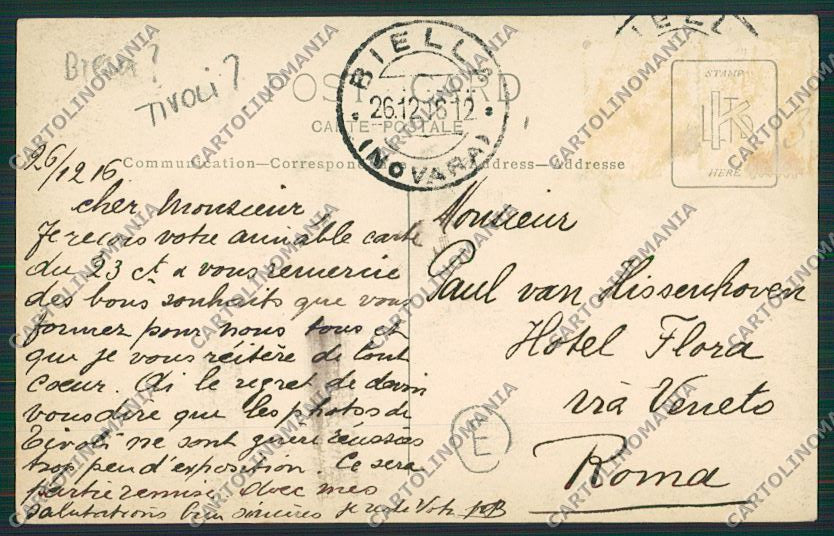 Tivoli?
POST CARD
CARTE POSTALE
BIELLA
26.12.16 12
(NOVARA)
STAMP
HERE
Communication—Correspondance
Address—Adresse
26/12 16
Cher Monsieur
Je reçois votre aimable carte
du 23 ct & vous remercie
des bons souhaits que vous
formez pour nous tous et
que je vous réitère de tout
coeur. Ai le regret de devoir
vous dire que les photos de
Tivoli ne sont guère réussies
trop peu d'exposition. Ce sera
partie remise. Avec mes
salutations bien sincères je reste Votre
Monsieur
Paul van Hissenhoven
Hotel Flora
via Veneto
Roma
E
CARTOLINOMANIA